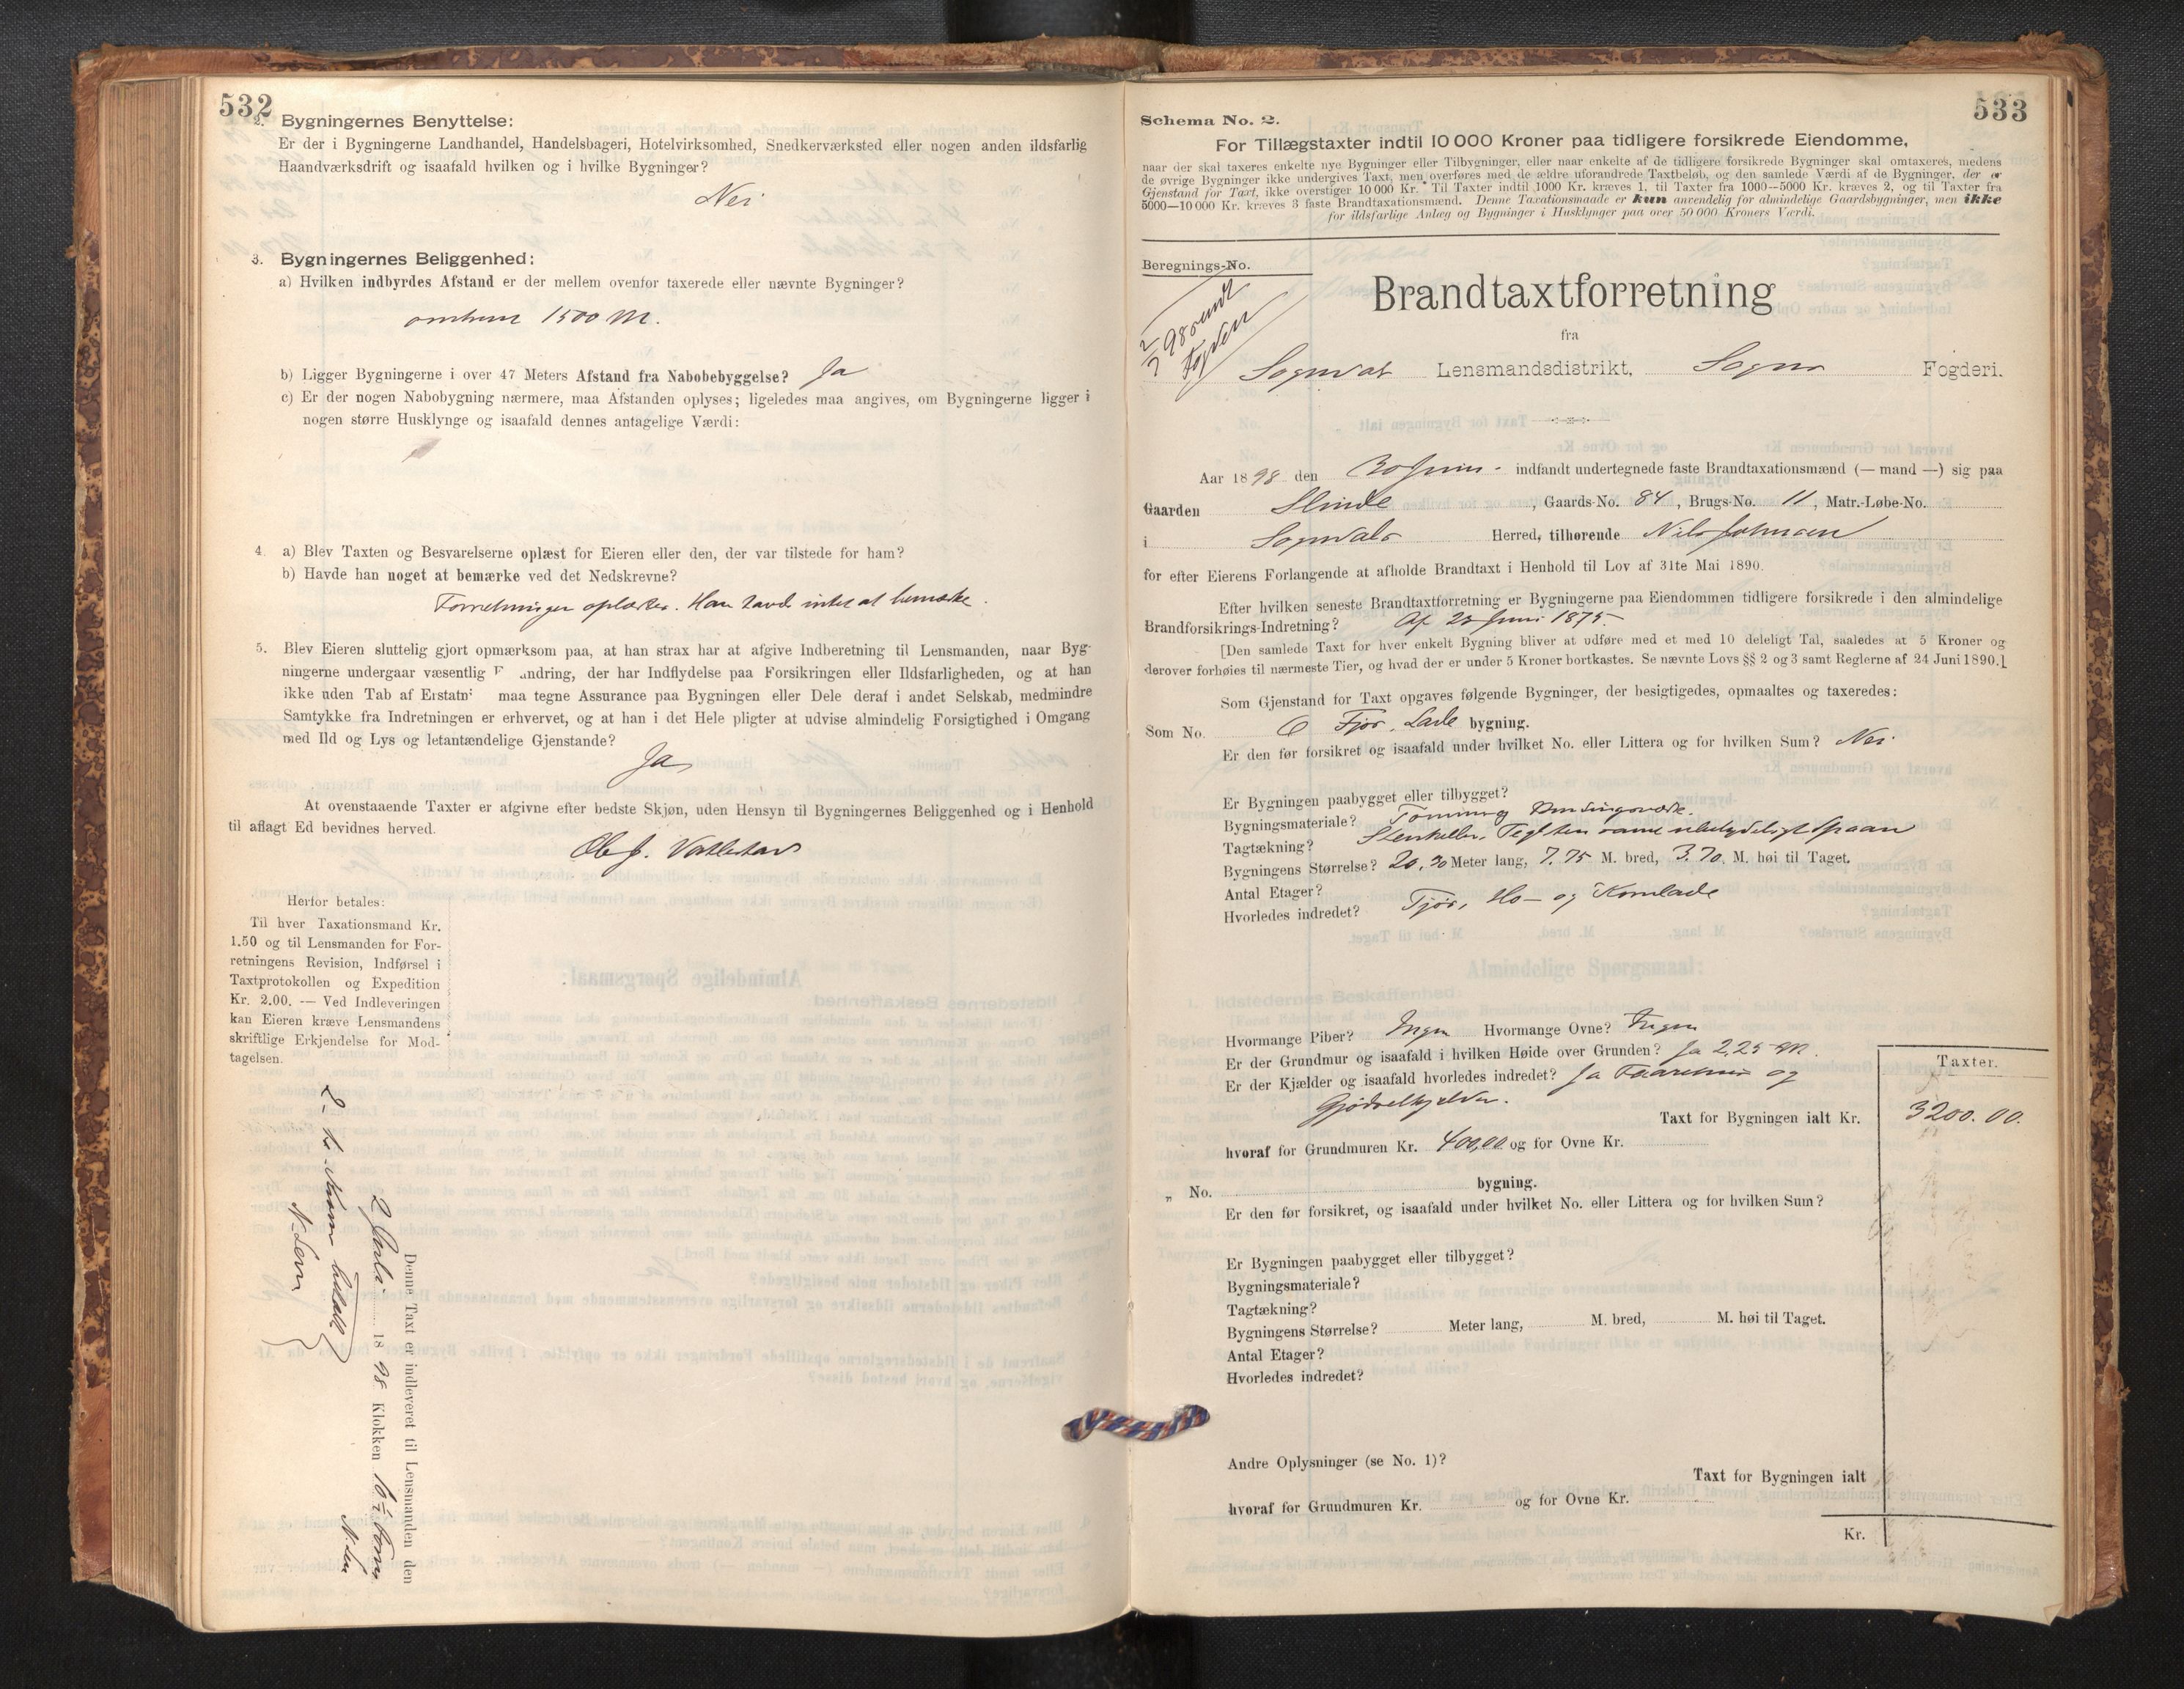 532
2. Bygningernes Benyttelse:
Er der i Bygningerne Landhandel, Handelsbageri, Hotelvirksomhed, Snedkerværksted eller nogen anden ildsfarlig
Haandværksdrift og isaafald hvilken og i hvilke Bygninger?
Nei
3. Bygningernes Beliggenhed:
a) Hvilken indbyrdes Afstand er der mellem ovenfor taxerede eller nævnte Bygninger?
omtrent 1500 M.
b) Ligger Bygningerne i over 47 Meters Afstand fra Nabobebyggelse? Ja
c) Er der nogen Nabobygning nærmere, maa Afstanden oplyses; ligeledes maa angives, om Bygningerne ligger i
nogen større Husklynge og isaafald dennes antagelige Værdi:
4. a) Blev Taxten og Besvarelserne oplæst for Eieren eller den, der var tilstede for ham?
b) Havde han noget at bemærke ved det Nedskrevne?
Forretningen oplæstes. Han havde intet at bemærke.
5. Blev Eieren sluttelig gjort opmærksom paa, at han strax har at afgive Indberetning til Lensmanden, naar Byg-
ningerne undergaar væsentlig F andring, der har Indflydelse paa Forsikringen eller Ildsfarligheden, og at han
ikke uden Tab af Erstatn maa tegne Assurance paa Bygningen eller Dele deraf i andet Selskab, medmindre
Samtykke fra Indretningen er erhvervet, og at han i det Hele pligter at udvise almindelig Forsigtighed i Omgang
med Ild og Lys og letantændelige Gjenstande?
Ja
At ovenstaaende Taxter er afgivne efter bedste Skjøn, uden Hensyn til Bygningernes Beliggenhed og i Henhold
til aflagt Ed bevidnes herved.
Ole J.
Herfor betales:
Til hver Taxationsmand Kr.
1.50 og til Lensmanden for For-
retningens Revision, Indførsel i
Taxtprotokollen og Expedition
Kr. 2.00. — Ved Indleveringen
kan Eieren kræve Lensmandens
skriftlige Erkjendelse for Mod-
tagelsen.
Denne Taxt er indleveret til Lensmanden den
2 Juli 1898 Klokken
533
Schema No. 2.
For Tillægstaxter indtil 10 000 Kroner paa tidligere forsikrede Eiendomme,
naar der skal taxeres enkelte nye Bygninger eller Tilbygninger, eller naar enkelte af de tidligere forsikrede Bygninger skal omtaxeres, medens
de øvrige Bygninger ikke undergives Taxt, men overføres med de ældre uforandrede Taxtbeløb, og den samlede Værdi af de Bygninger, der er
Gjenstand for Taxt, ikke overstiger 10 000 Kr. Til Taxter indtil 1000 Kr. kræves 1, til Taxter fra 1000—5000 Kr. kræves 2, og til Taxter fra
5000—10 000 Kr. kræves 3 faste Brandtaxationsmænd. Denne Taxationsmaade er kun anvendelig for almindelige Gaardsbygninger, men ikke
for ildsfarlige Anlæg og Bygninger i Husklynger paa over 50 000 Kroners Værdi.
Beregnings-No.
2/7 98 sendt
Fogden
Brandtaxtforretning
fra
Sogndal Lensmandsdistrikt, Sogns Fogderi.
Aar 1898 den 30 Juni indfandt undertegnede faste Brandtaxationsmænd (— mand —) sig paa
Gaarden Slinde, Gaards-No. 84, Brugs-No. 11, Matr.-Løbe-No.
i Sogndals Herred, tilhørende Nils Johnsen
for efter Eierens Forlangende at afholde Brandtaxt i Henhold til Lov af 31te Mai 1890.
Efter hvilken seneste Brandtaxtforretning er Bygningerne paa Eiendommen tidligere forsikrede i den almindelige
Brandforsikrings-Indretning? Af 25 Juni 1875.
[Den samlede Taxt for hver enkelt Bygning bliver at udføre med et med 10 deleligt Tal, saaledes at 5 Kroner og
derover forhøies til nærmeste Tier, og hvad der er under 5 Kroner bortkastes. Se nævnte Lovs §§ 2 og 3 samt Reglerne af 24 Juni 1890.]
Som Gjenstand for Taxt opgaves følgende Bygninger, der besigtigedes, opmaaltes og taxeredes:
Som No. 6 Fjøs, Lade bygning.
Er den før forsikret og isaafald under hvilket No. eller Littera og for hvilken Sum? Nei
Er Bygningen paabygget eller tilbygget?
Bygningsmateriale? Tømmer og Bindingsværk.
Tagtækning? Stenheller, Teglsten samt ubetydeligt Spaan
Bygningens Størrelse? 20,30 Meter lang, 7.75 M. bred, 3.70 M. høi til Taget.
Antal Etager?
Hvorledes indredet? Fjøs, Hø- og Kornlade
Hvormange Piber? Ingen Hvormange Ovne? Ingen
Er der Grundmur og isaafald i hvilken Høide over Grunden? Ja 2,25 M.
Er der Kjælder og isaafald hvorledes indredet? Ja Faarehus og
Gjødselkjelder.
Taxter.
Taxt for Bygningen ialt Kr. 3200.00.
hvoraf for Grundmuren Kr. 400,00 og for Ovne Kr.
„ No. bygning.
Er den før forsikret, og isaafald under hvilket No. eller Littera og for hvilken Sum?
Er Bygningen paabygget eller tilbygget?
Bygningsmateriale?
Tagtækning?
Bygningens Størrelse? Meter lang, M. bred, M. høi til Taget.
Antal Etager?
Hvorledes indredet?
Andre Oplysninger (se No. 1)?
Taxt for Bygningen ialt
hvoraf for Grundmuren Kr. og for Ovne Kr.
Kr.